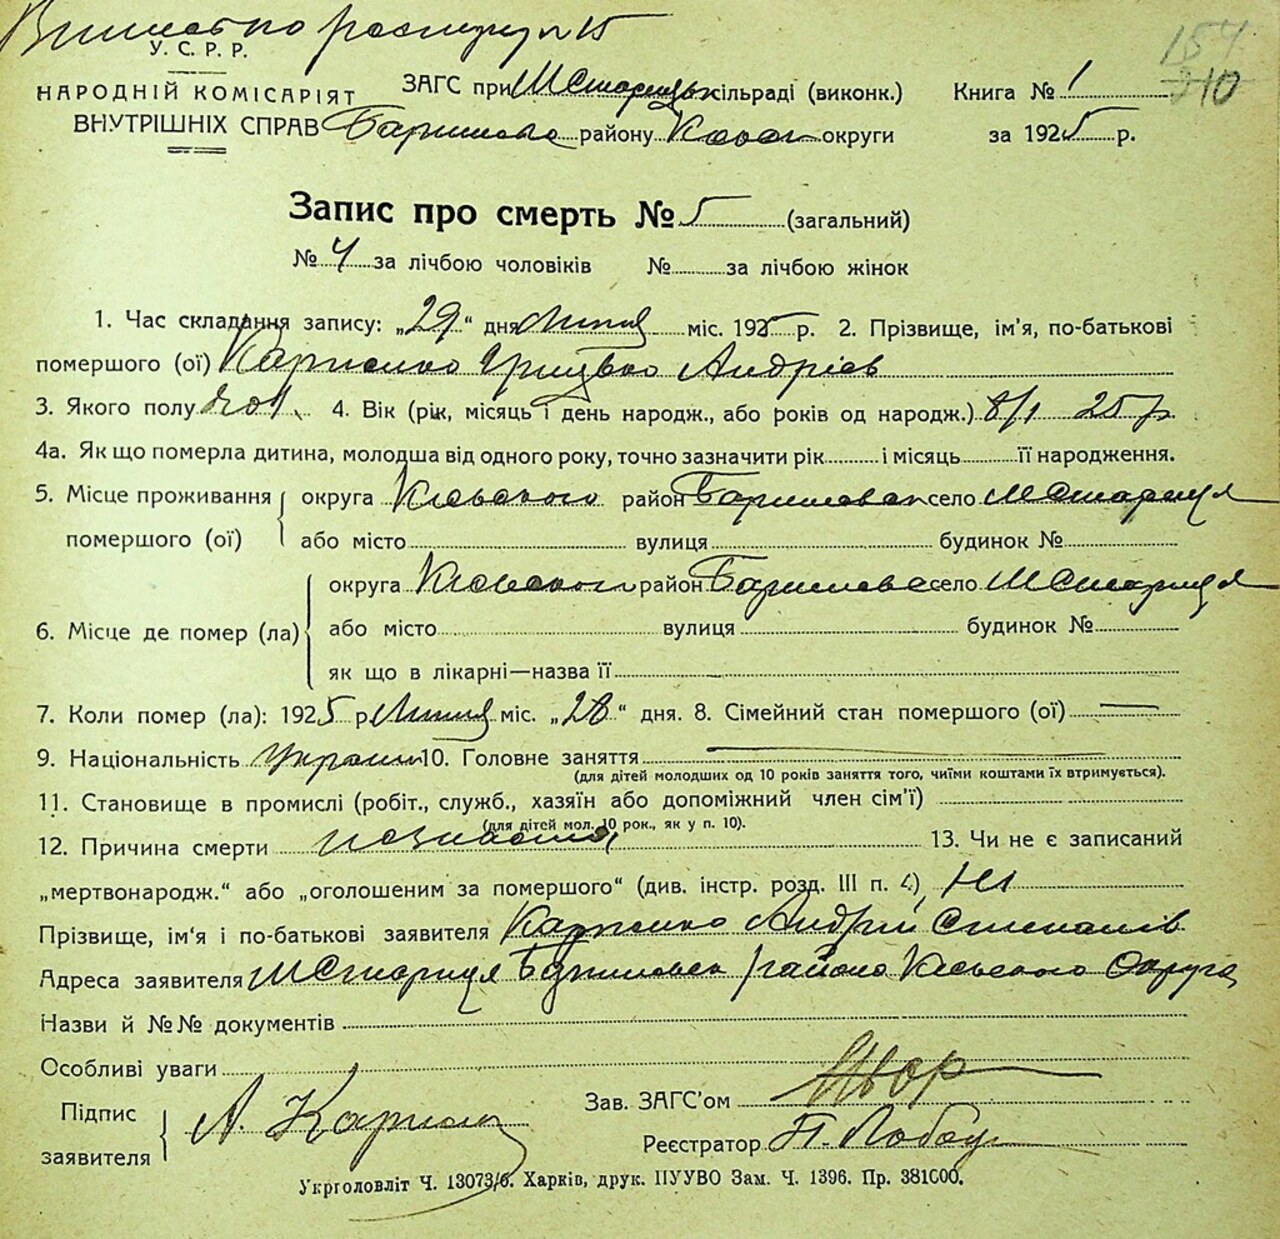 154
У. С. Р. Р.
НАРОДНІЙ КОМІСАРІЯТ
ВНУТРІШНІХ СПРАВ
ЗАГС при МСтарицьк сільраді (виконк.)
району округи
Книга № 1
210
за 1925 р.
Запис про смерть № 5 (загальний)
№ 4 за лічбою чоловіків № за лічбою жінок
1. Час складання запису: „29“ дня Липня міс. 1925 р. 2. Прізвище, ім'я, по-батькові
помершого (ої) Карпенко Грицько Андрієв
3. Якого полу чол. 4. Вік (рік, місяць і день народж., або років од народж.) 8/1 25 р
4а. Як що померла дитина, молодша від одного року, точно зазначити рік і місяць її народження.
5. Місце проживання помершого (ої) округа Київського район село МСтариця
або місто вулиця будинок №
6. Місце де помер (ла) округа район село МСтариця
або місто вулиця будинок №
як що в лікарні—назва її
7. Коли помер (ла): 1925 р Липня міс. „28“ дня. 8. Сімейний стан помершого (ої) —
9. Національність 10. Головне заняття —
(для дітей молодших од 10 років заняття того, чиїми коштами їх втримується).
11. Становище в промислі (робіт., служб., хазяїн або допоміжний член сім'ї)
(для дітей мол. 10 рок., як у п. 10).
12. Причина смерти незнаєма 13. Чи не є записаний
„мертвонародж.“ або „оголошеним за помершого“ (див. інстр. розд. III п. 4) Ні
Прізвище, ім'я і по-батькові заявителя Карпенко Андрій Степанів
Адреса заявителя МСтариця району Київського Округа
Назви й №№ документів
Особливі уваги
Підпис заявителя А. Карпенко
Зав. ЗАГС'ом
Реєстратор П. Лобода
Укрголовліт Ч. 13073/б. Харків, друк. ПУУВО Зам. Ч. 1396. Пр. 381000.